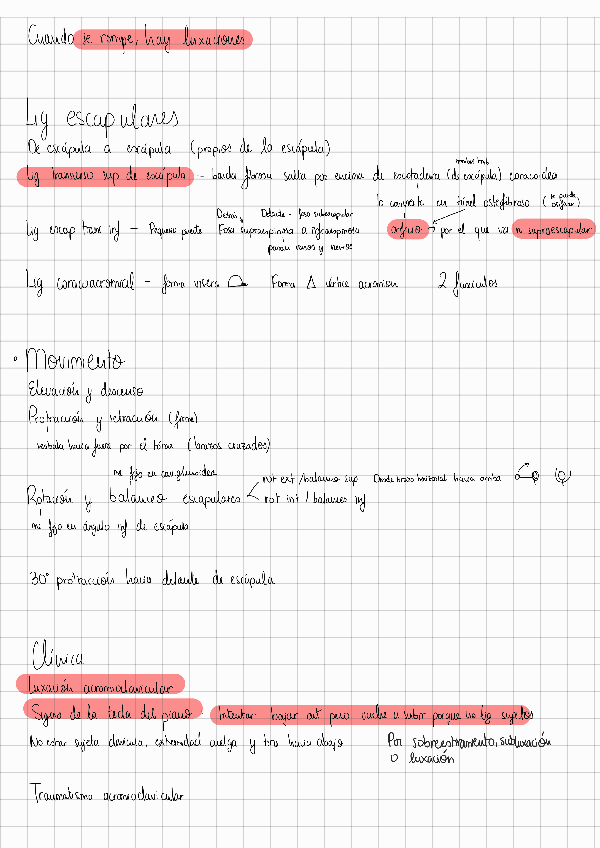 Cuando se rompe, hay luxaciones
Lig escapulares
De escápula a escápula (propios de la escápula)
Lig transverso sup de escápula - banda fibrosa salta por encima de escotadura (de escápula) coracoidea
lo convierte en túnel osteofibroso (se puede osificar)
Detrás Delante - fosa subescapular
Lig escap trans inf - Pequeño puente Fosa supraespinosa a infraespinosa orificio → por el que va n supraescapular
pasan vasos y nervios
Lig coracoacromial - forma visera Forma Δ vértice acromion 2 fascículos
• Movimiento
Elevación y descenso
Protracción y retracción (firme)
resbala hacia fuera por el tórax (brazos cruzados)
me fijo en cav glenoidea
rot ext / balanceo sup Desde brazo horizontal hacia arriba
Rotación y balanceo escapulares
rot int / balanceo inf
me fijo en ángulo inf de escápula
30° protracción hacia delante de escápula
Clínica
Luxación acromioclavicular
Signo de la tecla del piano - Intentar bajar art pero vuelve a subir porque no lig sujetos
No estar sujeta clavícula, extremidad cuelga y tira hacia abajo
Por sobreestiramiento, subluxación
o luxación
Traumatismo acromioclavicular